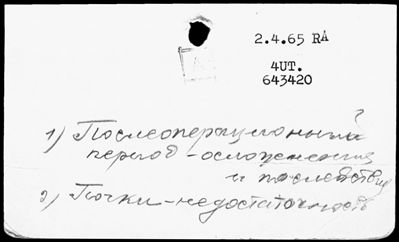 2.4.65 RA
4UT.
643420
?
1) Послеоперационный
период - осложнения
и последствия
2) Почки - недостаточность